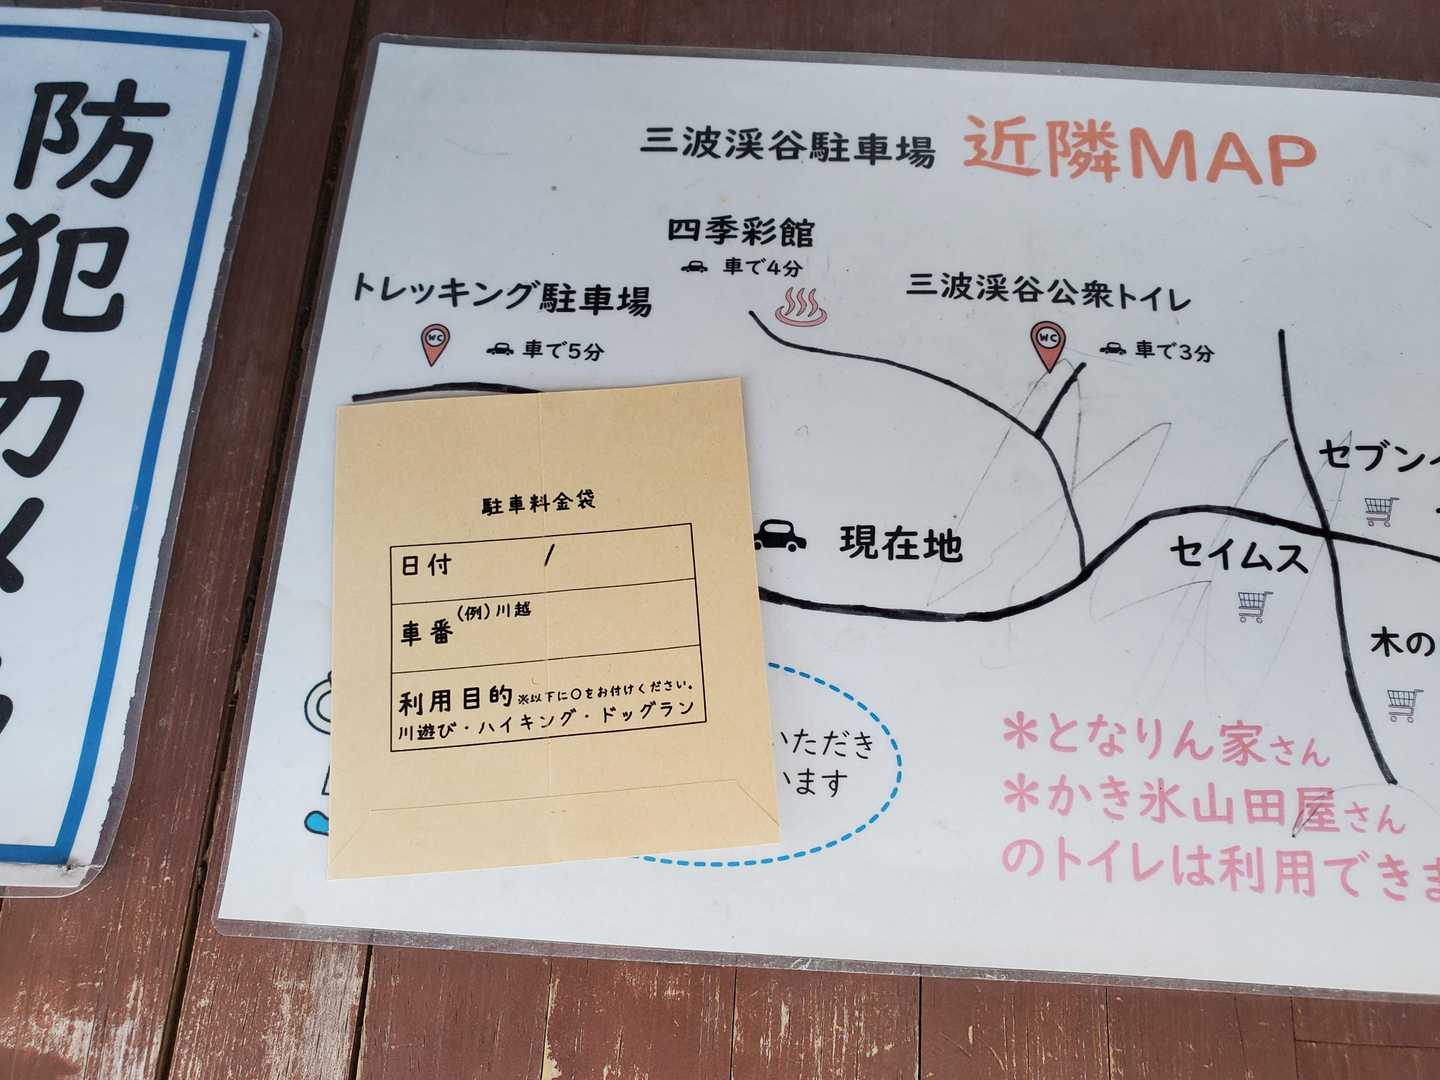 防犯カメ
三波渓谷駐車場 近隣MAP
四季彩館
車で4分
トレッキング駐車場
WC
車で5分
三波渓谷公衆トイレ
WC
車で3分
セブン
現在地
セイムス
木の
駐車料金袋
日付 /
車番 (例)川越
利用目的 ※以下に○をお付けください。
川遊び・ハイキング・ドッグラン
いただき
います
＊となりん家さん
＊かき氷山田屋さん
のトイレは利用できま